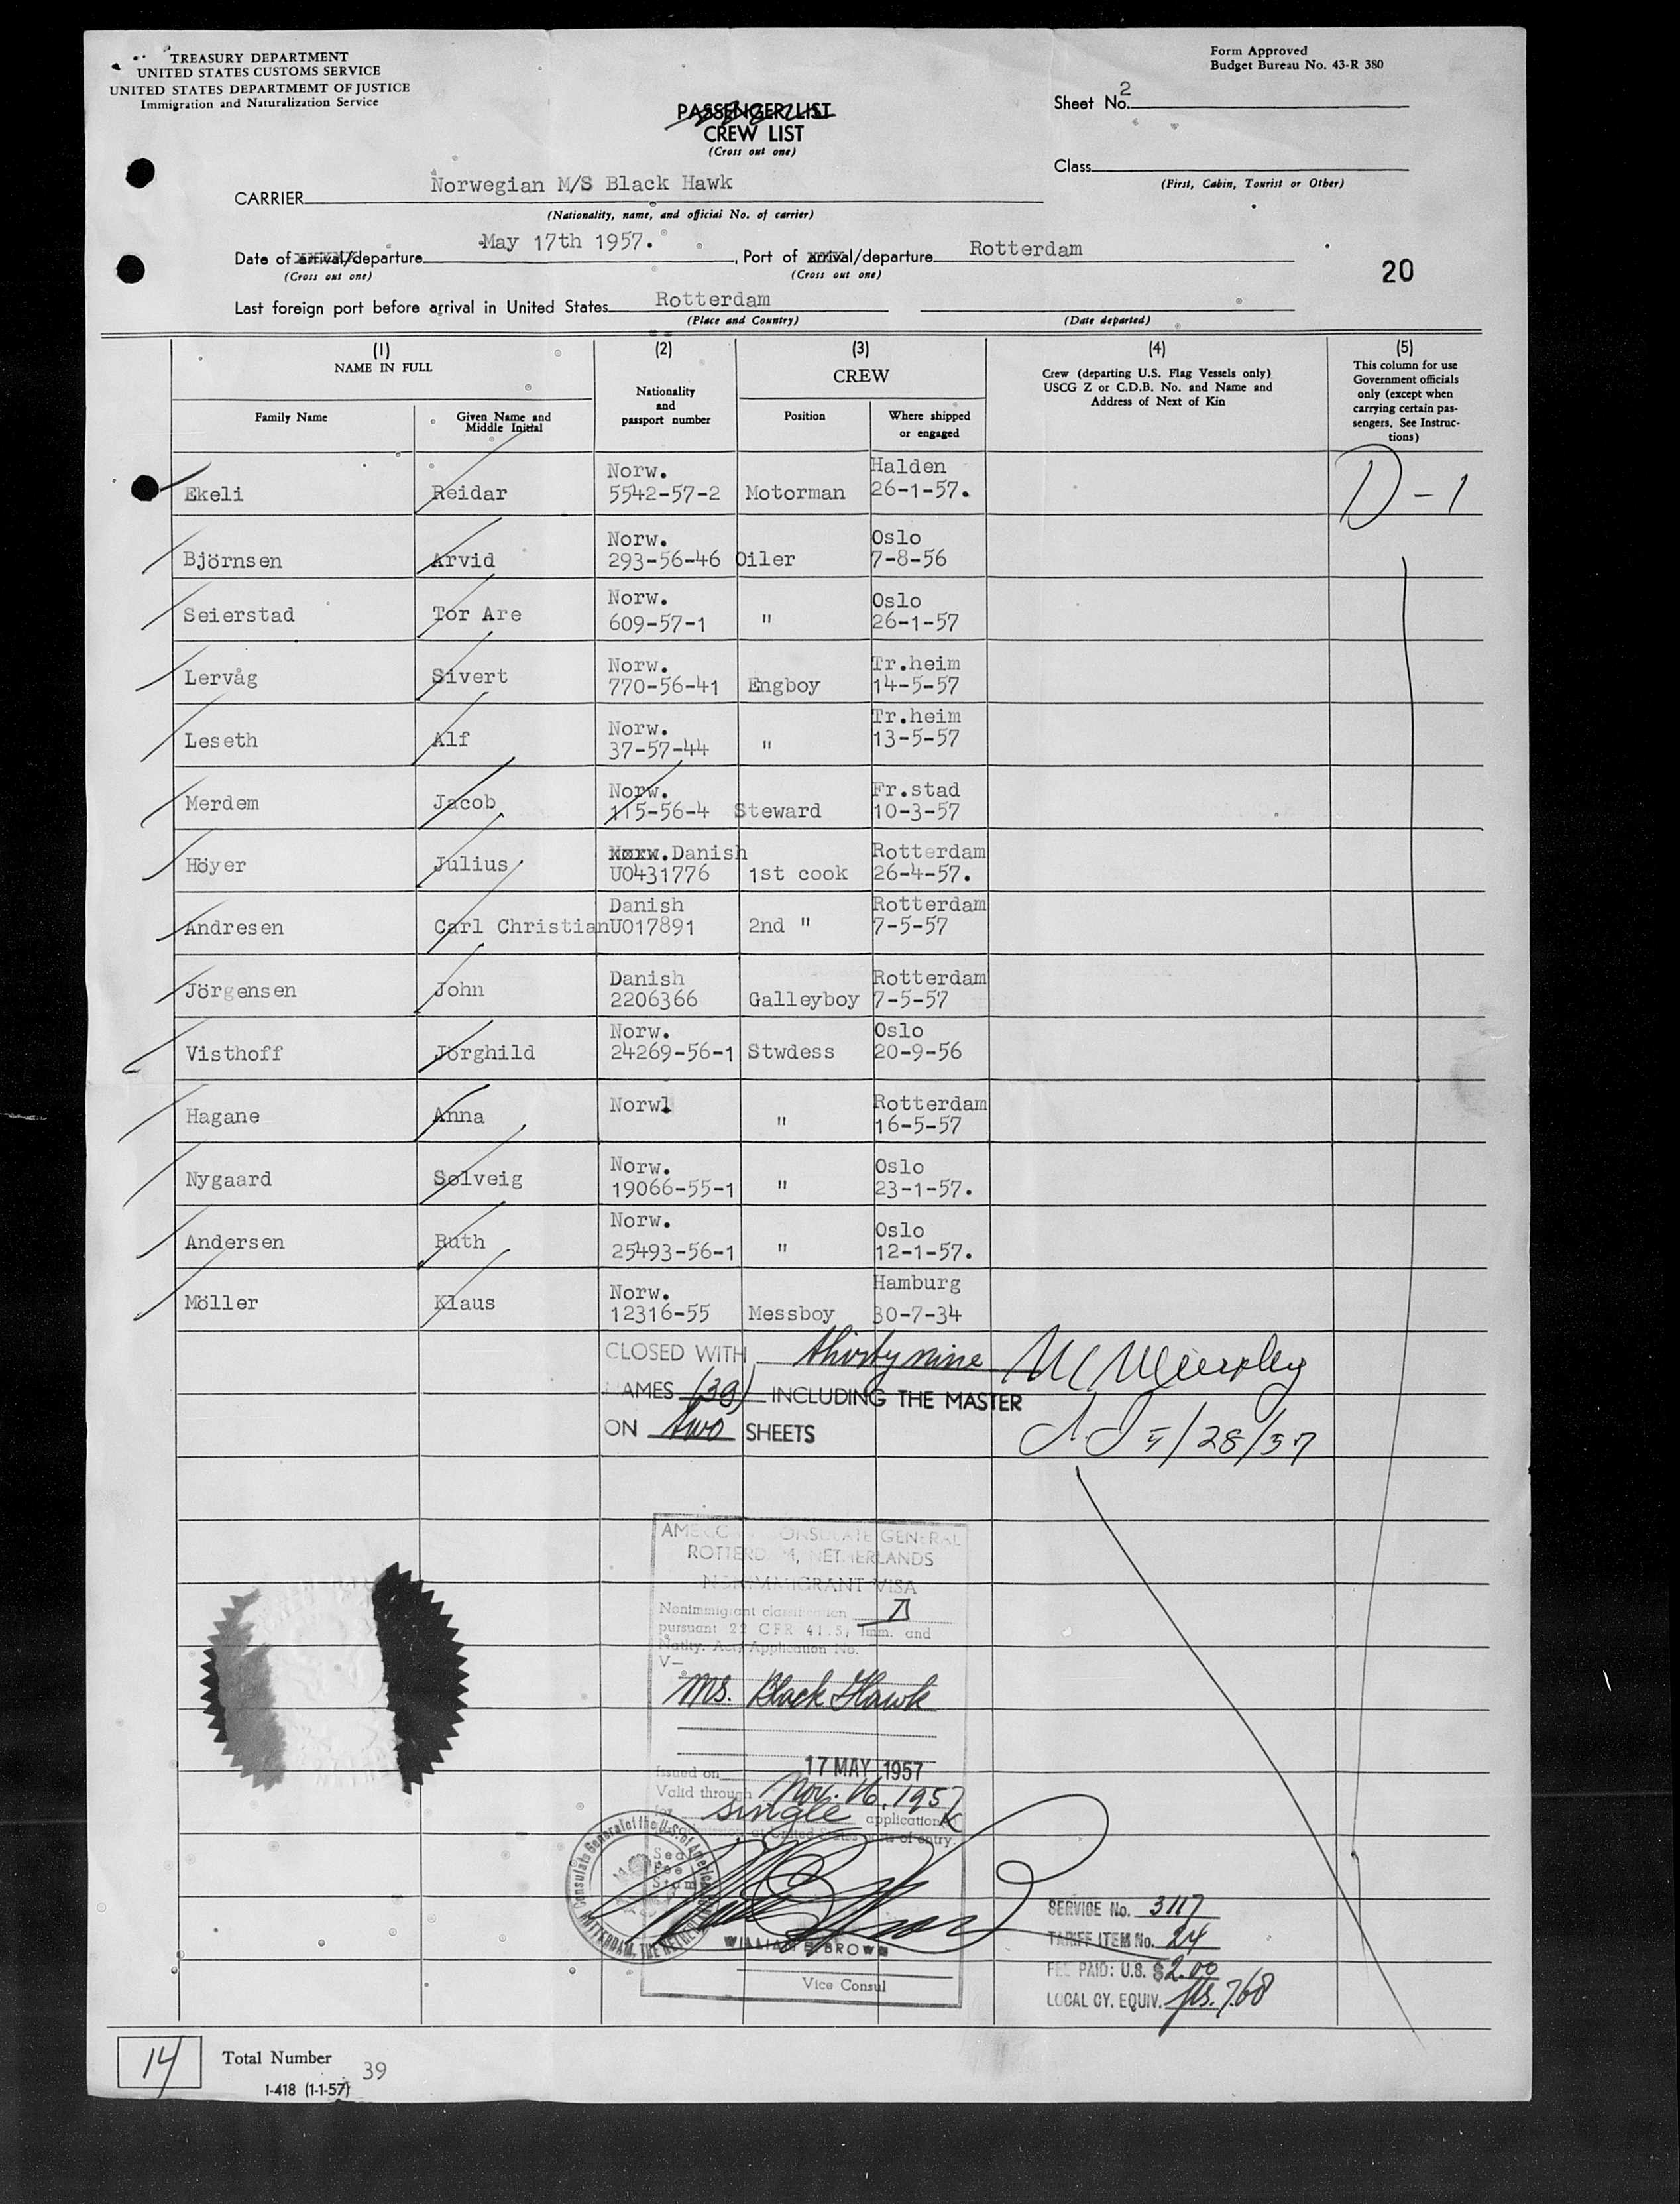 TREASURY DEPARTMENT
UNITED STATES CUSTOMS SERVICE
UNITED STATES DEPARTMEMT OF JUSTICE
Immigration and Naturalization Service
Form Approved
Budget Bureau No. 43-R 380
Sheet No. 2
PASSENGER LIST
CREW LIST
(Cross out one)
Class
(First, Cabin, Tourist or Other)
CARRIER Norwegian M/S Black Hawk
(Nationality, name, and official No. of carrier)
Date of arrival/departure May 17th 1957. , Port of arrival/departure Rotterdam
(Cross out one) (Cross out one)
20
Last foreign port before arrival in United States Rotterdam
(Place and Country) (Date departed)
(1) NAME IN FULL
Family Name
Given Name and Middle Initial
(2) Nationality and passport number
(3) CREW
Position
Where shipped or engaged
(4) Crew (departing U.S. Flag Vessels only) USCG Z or C.D.B. No. and Name and Address of Next of Kin
(5) This column for use Government officials only (except when carrying certain passengers. See Instructions)
Ekeli Reidar Norw. 5542-57-2 Motorman Halden 26-1-57. D-1
Björnsen Arvid Norw. 293-56-46 Oiler Oslo 7-8-56
Seierstad Tor Are Norw. 609-57-1 " Oslo 26-1-57
Lervåg Sivert Norw. 770-56-41 Engboy Tr.heim 14-5-57
Leseth Alf Norw. 37-57-44 " Tr.heim 13-5-57
Merdem Jacob Norw. 115-56-4 Steward Fr.stad 10-3-57
Höyer Julius Norw. Danish U0431776 1st cook Rotterdam 26-4-57.
Andresen Carl Christian Danish U017891 2nd " Rotterdam 7-5-57
Jörgensen John Danish 2206366 Galleyboy Rotterdam 7-5-57
Visthoff Jörghild Norw. 24269-56-1 Stwdess Oslo 20-9-56
Hagane Anna Norwl " Rotterdam 16-5-57
Nygaard Solveig Norw. 19066-55-1 " Oslo 23-1-57.
Andersen Ruth Norw. 25493-56-1 " Oslo 12-1-57.
Möller Klaus Norw. 12316-55 Messboy Hamburg 30-7-34
CLOSED WITH thirty nine
NAMES (39) INCLUDING THE MASTER
ON two SHEETS
5/28/57
AMERICAN CONSULATE GENERAL
ROTTERDAM, NETHERLANDS
NONIMMIGRANT VISA
Nonimmigrant classification D
pursuant 22 CFR 41.5, Imm. and
Natlty. Act, Application No.
V-
MS. Black Hawk
Issued on 17 MAY 1957
Valid through Nov. 16, 1957
for single application
admission at United States ports of entry.
Seal
Fee
Stamp
Consulate General of the U.S. of America
ROTTERDAM, THE NETHERLANDS
WILLIAM B BROWN
Vice Consul
SERVICE No. 3117
TARIFF ITEM No. 24
FEE PAID: U.S. $2.00
LOCAL CY. EQUIV. fls. 7.68
14
Total Number 39
I-418 (1-1-57)